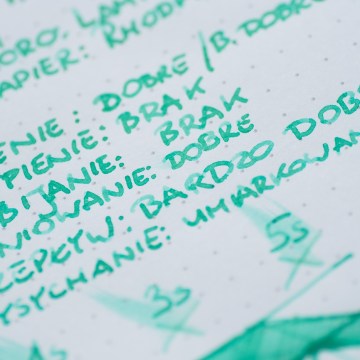 PAPIER: RHOD
ENIE: DOBRE/B. DOBR
PIENIE: BRAK
BIJANIE: BRAK
NIOWANIE: DOBRE
ZEPŁYW: BARDZO DOB
YSYCHANIE: UMIARKOWAN
5s
3s